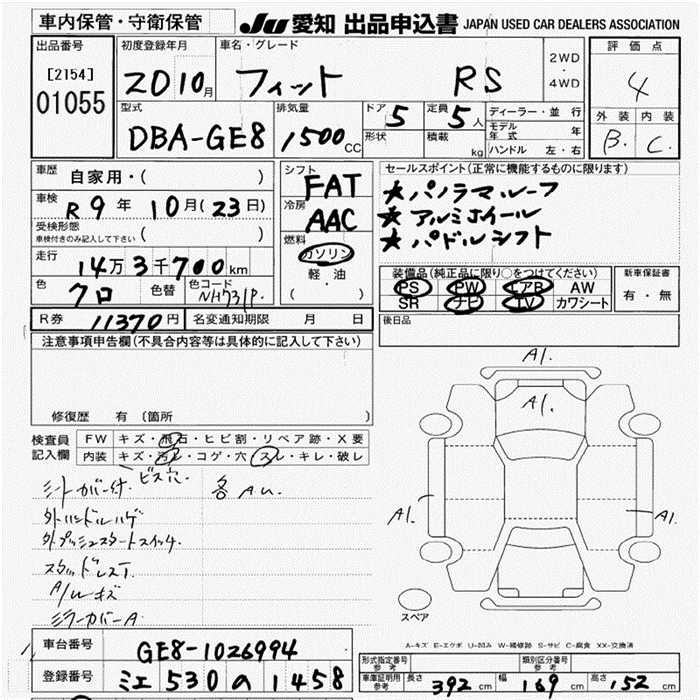 車内保管・守衛保管
JU 愛知 出品申込書 JAPAN USED CAR DEALERS ASSOCIATION
出品番号 [2154] 01055
初度登録年月 20 10月
車名・グレード フィット RS
2WD ・ 4WD
評価点 4
外装 B. 内装 C.
型式 DBA-GE8
排気量 1500cc
ドア 5 定員 5人
形状 積載 kg
ディーラー・並行
モデル年式 年
ハンドル 左・右
車歴 自家用・( )
車検 R9年 10月(23日)
受検形態 車検付きのみ記入して下さい ( )
走行 14万3千700km
色 クロ 色替 色コード NH731P.
シフト FAT
冷房 AAC
燃料 ガソリン
軽・油
( )
セールスポイント(正常に機能するものに限ります)
★パノラマルーフ
★アルミホイール
★パドルシフト
装備品(純正品に限り○をつけてください)
PS PW エアB AW
SR ナビ TV カワシート
新車保証書 有・無
R券 11370円 名変通知期限 月 日
後日品
注意事項申告欄(不具合内容等は具体的に記入して下さい)
修復歴 有 〔箇所
検査員記入欄
FW キズ・飛石・ヒビ割・リペア跡・X要
内装 キズ・汚れ・コゲ・穴・スレ・キレ・破レ
ビス穴
シートカバー付. 各AU.
外ハンドルハゲ
外プッシュスタートスイッチ.
スタッドレスT.
A/Wキズ
ミラーカバーA
A1.
A1.
A1.
A1.
スペア
A-キズ E-エクボ U-凹み W-補修跡 S-サビ C-腐食 XX-交換済
車台番号 GE8-1026994
登録番号 ミエ 530 の 1458
形式指定番号 参考 類別区分番号 参考
車庫証明用 参考 長さ 392cm 幅 169cm 高さ 152cm